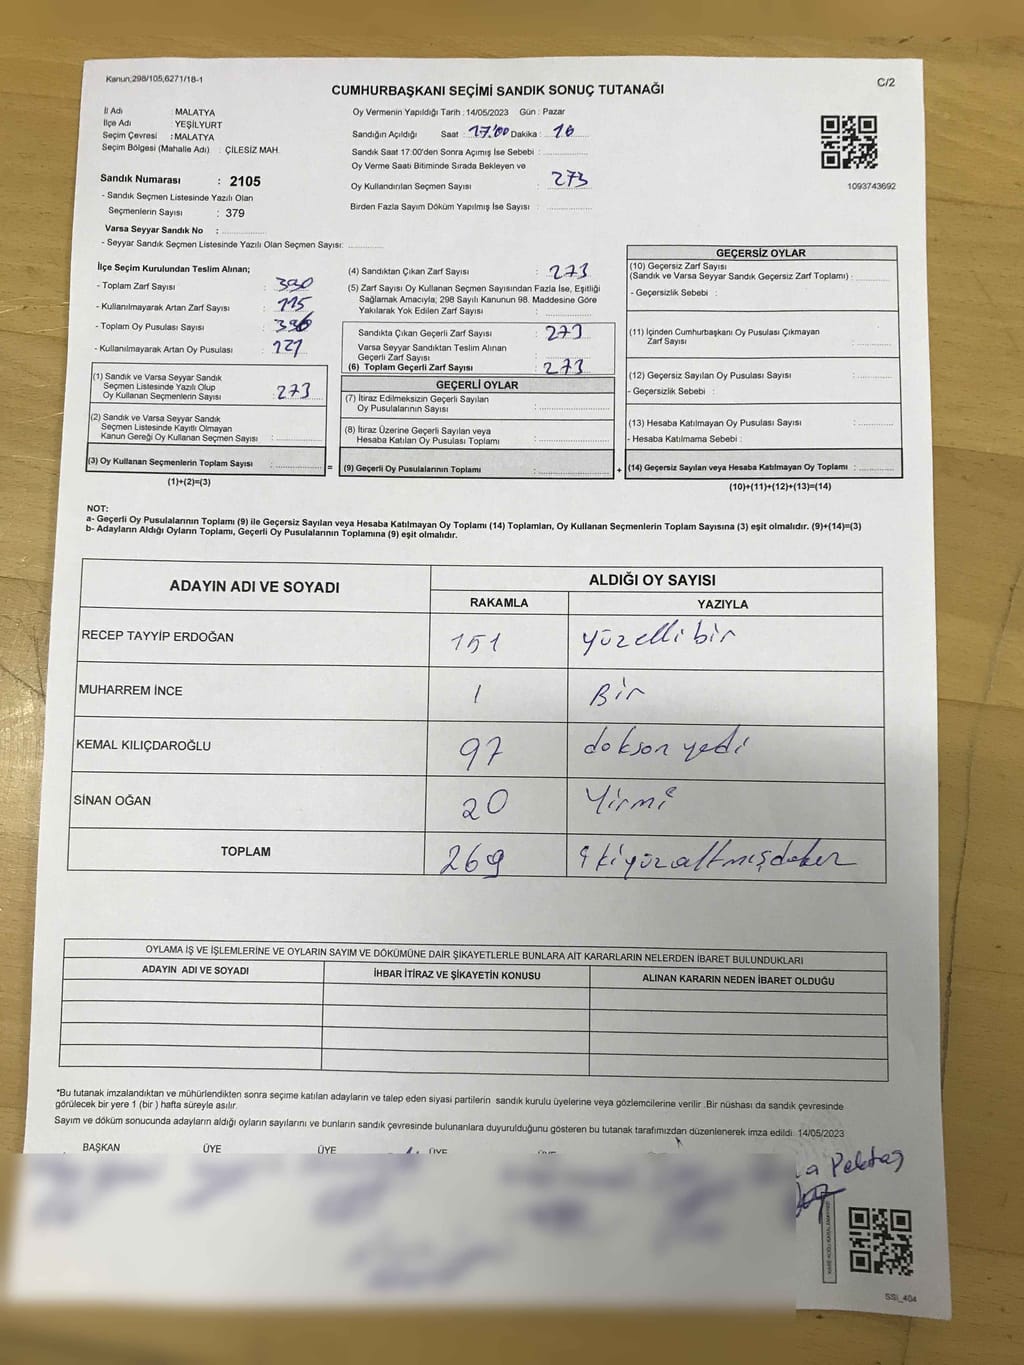 Kanun;298/105,6271/18-1
C/2
CUMHURBAŞKANI SEÇİMİ SANDIK SONUÇ TUTANAĞI
İl Adı : MALATYA
İlçe Adı : YEŞİLYURT
Seçim Çevresi : MALATYA
Seçim Bölgesi (Mahalle Adı) : ÇİLESİZ MAH.
Sandık Numarası : 2105
- Sandık Seçmen Listesinde Yazılı Olan
Seçmenlerin Sayısı : 379
Varsa Seyyar Sandık No :
- Seyyar Sandık Seçmen Listesinde Yazılı Olan Seçmen Sayısı:
Oy Vermenin Yapıldığı Tarih : 14/05/2023 Gün : Pazar
Sandığın Açıldığı Saat : 17:00 Dakika : 16
Sandık Saat 17:00'den Sonra Açımış İse Sebebi :
Oy Verme Saati Bitiminde Sırada Bekleyen ve
Oy Kullandırılan Seçmen Sayısı : 273
Birden Fazla Sayım Döküm Yapılmış İse Sayısı :
1093743692
İlçe Seçim Kurulundan Teslim Alınan;
- Toplam Zarf Sayısı :
- Kullanılmayarak Artan Zarf Sayısı : 115
- Toplam Oy Pusulası Sayısı :
- Kullanılmayarak Artan Oy Pusulası : 121
(1) Sandık ve Varsa Seyyar Sandık
Seçmen Listesinde Yazılı Olup
Oy Kullanan Seçmenlerin Sayısı : 273
(2) Sandık ve Varsa Seyyar Sandık
Seçmen Listesinde Kayıtlı Olmayan
Kanun Gereği Oy Kullanan Seçmen Sayısı :
(3) Oy Kullanan Seçmenlerin Toplam Sayısı : =
(1)+(2)=(3)
(4) Sandıktan Çıkan Zarf Sayısı : 273
(5) Zarf Sayısı Oy Kullanan Seçmen Sayısından Fazla İse, Eşitliği
Sağlamak Amacıyla; 298 Sayılı Kanunun 98. Maddesine Göre
Yakılarak Yok Edilen Zarf Sayısı :
Sandıkta Çıkan Geçerli Zarf Sayısı : 273
Varsa Seyyar Sandıktan Teslim Alınan
Geçerli Zarf Sayısı :
(6) Toplam Geçerli Zarf Sayısı : 273
GEÇERLİ OYLAR
(7) İtiraz Edilmeksizin Geçerli Sayılan
Oy Pusulalarının Sayısı :
(8) İtiraz Üzerine Geçerli Sayılan veya
Hesaba Katılan Oy Pusulası Toplamı :
(9) Geçerli Oy Pusulalarının Toplamı : +
GEÇERSİZ OYLAR
(10) Geçersiz Zarf Sayısı
(Sandık ve Varsa Seyyar Sandık Geçersiz Zarf Toplamı) :
- Geçersizlik Sebebi :
(11) İçinden Cumhurbaşkanı Oy Pusulası Çıkmayan
Zarf Sayısı :
(12) Geçersiz Sayılan Oy Pusulası Sayısı :
- Geçersizlik Sebebi :
(13) Hesaba Katılmayan Oy Pusulası Sayısı :
- Hesaba Katılmama Sebebi :
(14) Geçersiz Sayılan veya Hesaba Katılmayan Oy Toplamı :
(10)+(11)+(12)+(13)=(14)
NOT:
a- Geçerli Oy Pusulalarının Toplamı (9) ile Geçersiz Sayılan veya Hesaba Katılmayan Oy Toplamı (14) Toplamları, Oy Kullanan Seçmenlerin Toplam Sayısına (3) eşit olmalıdır. (9)+(14)=(3)
b- Adayların Aldığı Oyların Toplamı, Geçerli Oy Pusulalarının Toplamına (9) eşit olmalıdır.
ADAYIN ADI VE SOYADI
ALDIĞI OY SAYISI
RAKAMLA YAZIYLA
RECEP TAYYİP ERDOĞAN 151 yüzellibir
MUHARREM İNCE 1 Bir
KEMAL KILIÇDAROĞLU 97 dokson yedi
SİNAN OĞAN 20 Yirmi
TOPLAM 269 ikiyüzaltmışdokuz
OYLAMA İŞ VE İŞLEMLERİNE VE OYLARIN SAYIM VE DÖKÜMÜNE DAİR ŞİKAYETLERLE BUNLARA AİT KARARLARIN NELERDEN İBARET BULUNDUKLARI
ADAYIN ADI VE SOYADI İHBAR İTİRAZ VE ŞİKAYETİN KONUSU ALINAN KARARIN NEDEN İBARET OLDUĞU
*Bu tutanak imzalandıktan ve mühürlendikten sonra seçime katılan adayların ve talep eden siyasi partilerin sandık kurulu üyelerine veya gözlemcilerine verilir .Bir nüshası da sandık çevresinde
görülecek bir yere 1 (bir ) hafta süreyle asılır.
Sayım ve döküm sonucunda adayların aldığı oyların sayılarını ve bunların sandık çevresinde bulunanlara duyurulduğunu gösteren bu tutanak tarafımızdan düzenlenerek imza edildi. 14/05/2023
BAŞKAN ÜYE ÜYE ÜYE
a Pektaş
SSİ_404